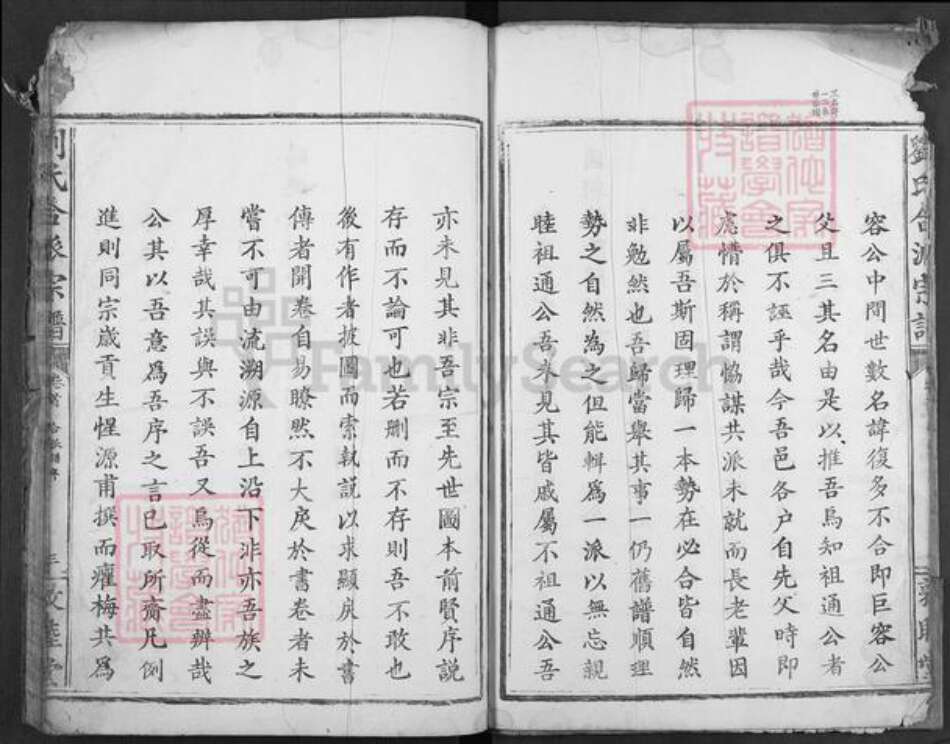 容公中間世數名諱復多不合即巨容公
父且三其名由是以推吾烏知祖通公者
之俱不誣乎哉今吾邑各户自先父時即
慮情於稱謂恊謀共派未就而長老輩因
以屬吾斯固理歸一本勢在必合皆自然
非勉然也吾歸當舉其事一仍舊譜順理
勢之自然為之但能輯為一派以無忘親
睦祖通公吾未見其皆戚屬不祖通公吾
劉氏合派宗譜
卷首
三
敦睦堂
亦未見其非吾宗至先世圖本前賢序說
存而不論可也若刪而不存則吾不敢也
後有作者披圖而索執說以求顯戾於書
傳者開卷自易瞭然不大戾於書卷者未
嘗不可由流溯源自上沿下非亦吾族之
厚幸哉其誤與不誤吾又烏從而盡辨哉
公其以吾意爲吾序之言已取所齎凡例
進則同宗歲貢生惺源甫撰而癯梅共爲
FamilySearch